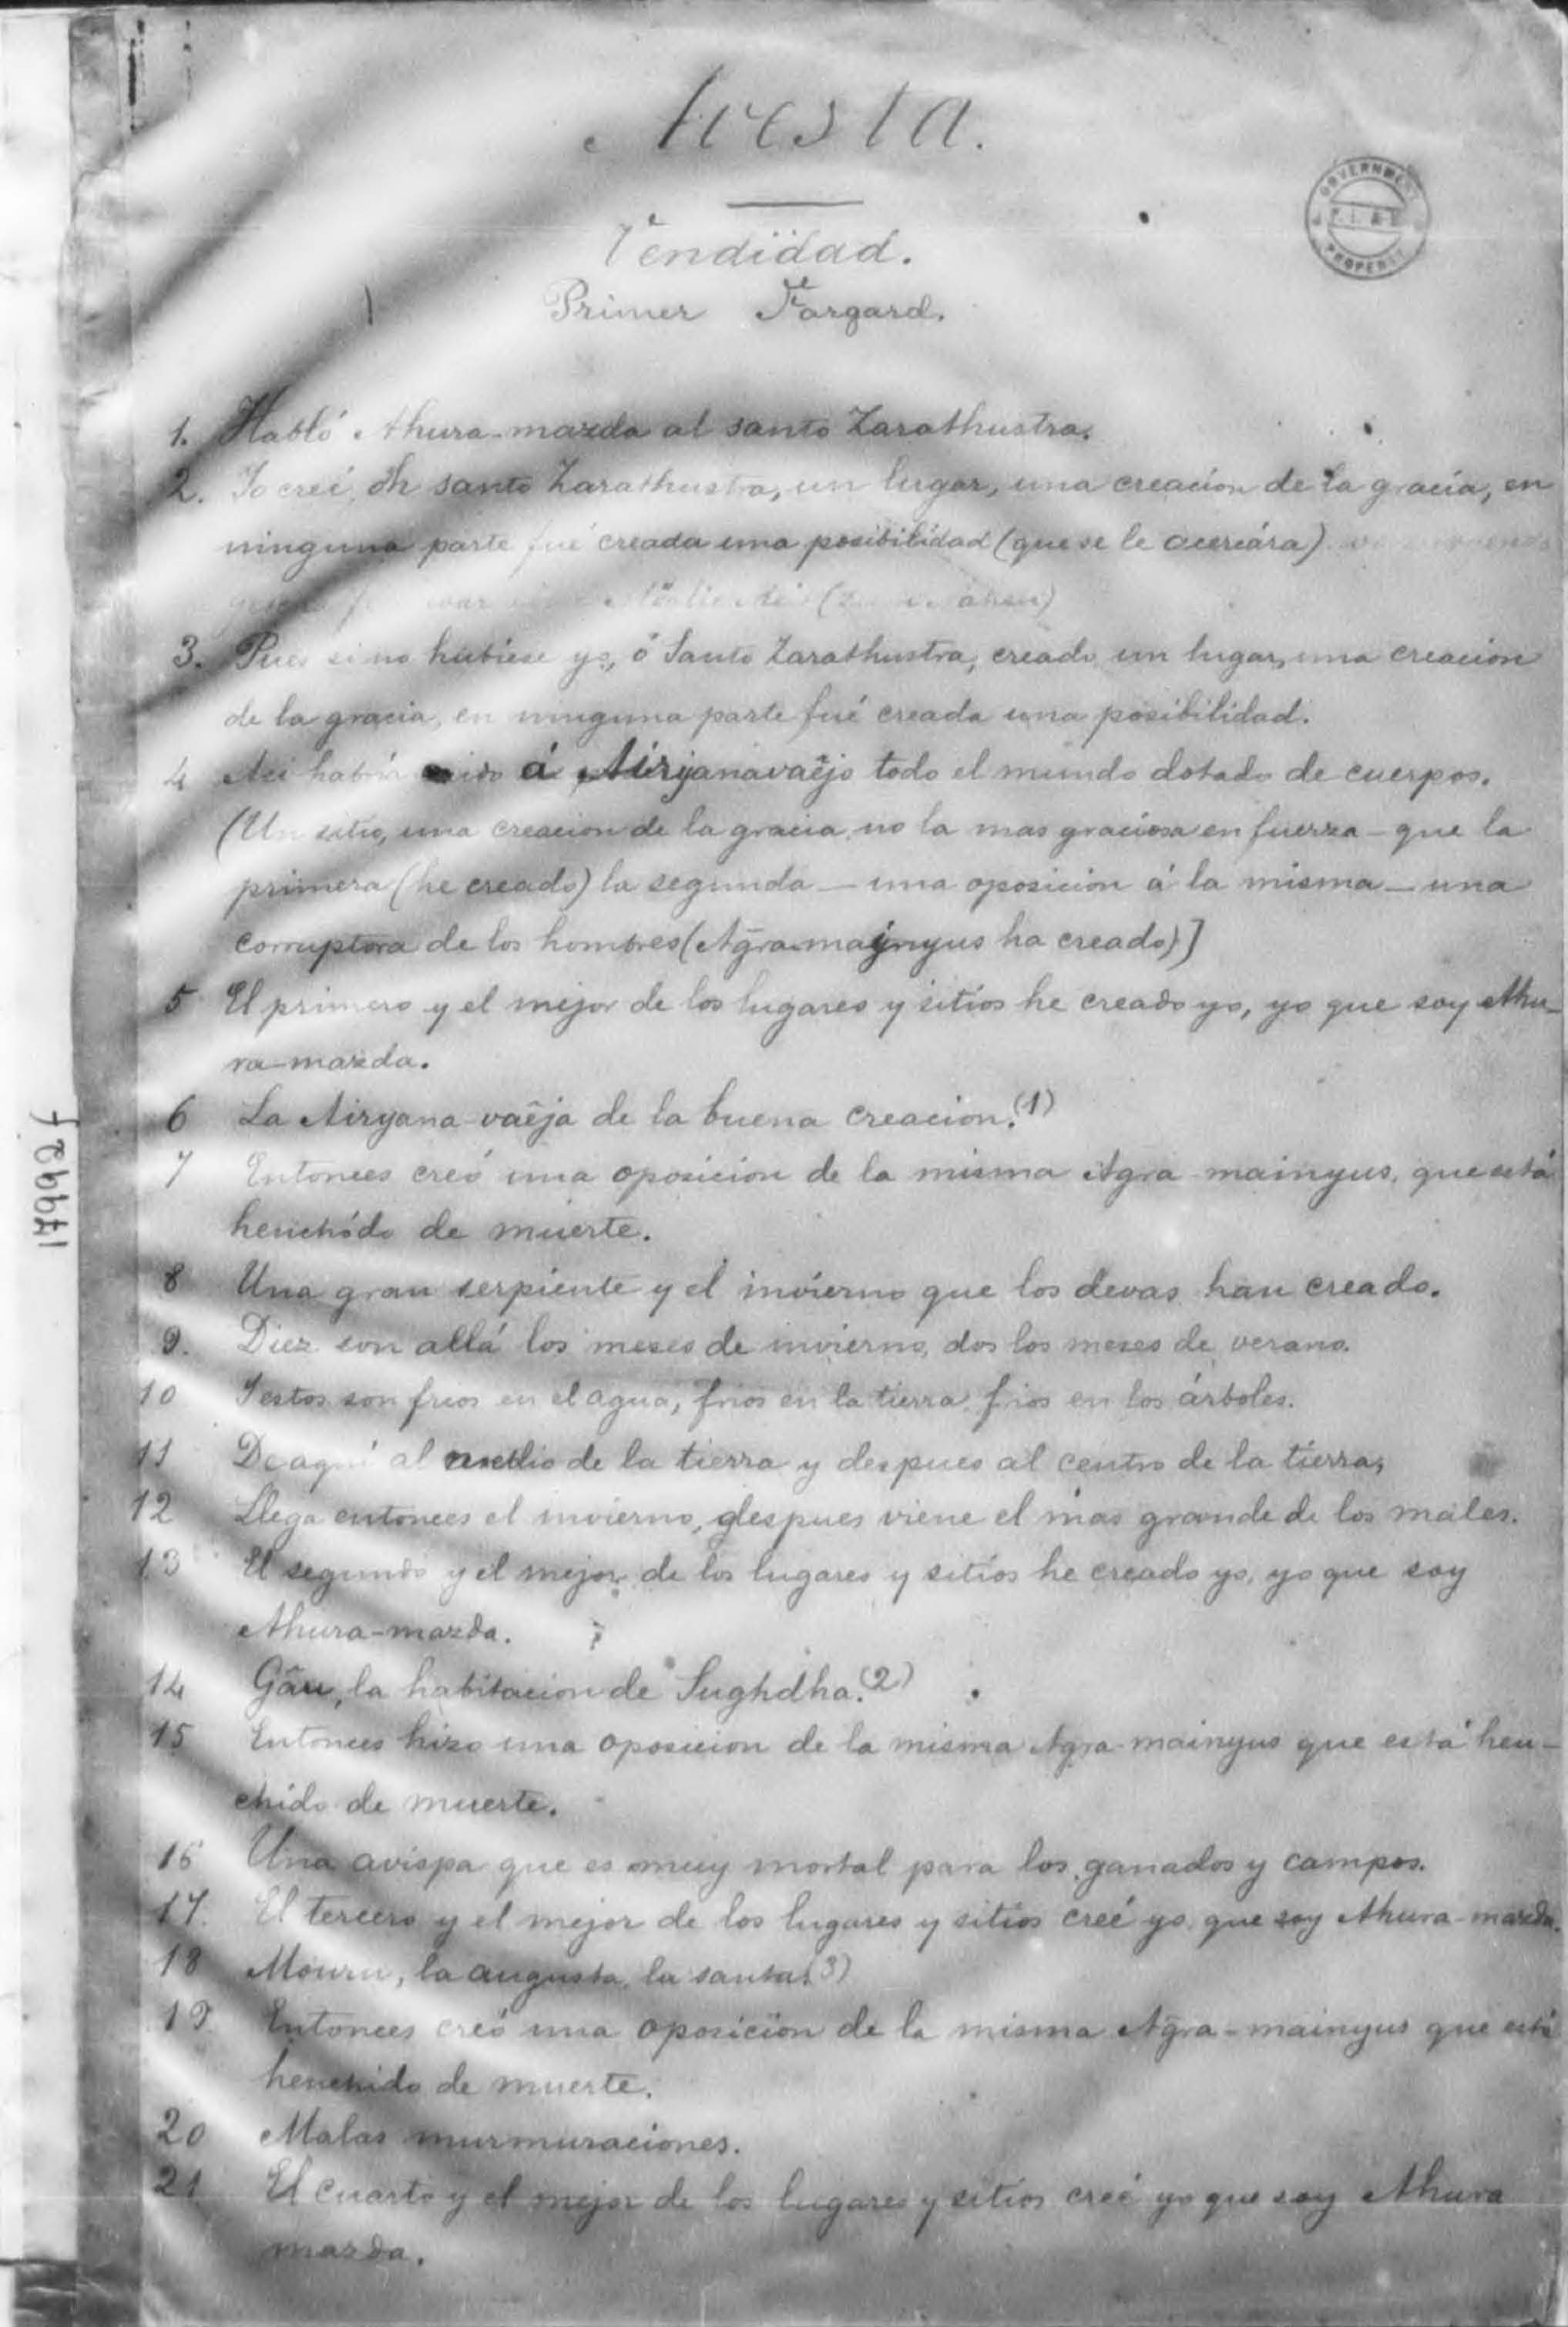 Avesta.
Vendidad.
Primer Fargard.
GOVERNMENT
PROPERTY
1. Habló Ahura-mazda al santo Zarathustra.
2. Yo creé, oh santo Zarathustra, un lugar, una creación de la gracia, en
ninguna parte fué creada una posibilidad (que se le acercára)
3. Pues si no hubiese yo, ó Santo Zarathustra, creado un lugar, una creacion
de la gracia, en ninguna parte fué creada una posibilidad.
4 Asi habria ido á Airyanavaêjo todo el mundo dotado de cuerpos.
(Un sitio, una creacion de la gracia, no la mas graciosa en fuerza – que la
primera (he creado) la segunda – una oposicion á la misma – una
corruptora de los hombres (Ag̃ra-mainyus ha creado)]
5 El primero y el mejor de los lugares y sitios he creado yo, yo que soy Ahu-
ra-mazda.
6 La Airyana-vaêja de la buena creacion.(1)
7 Entonces creó una oposicion de la misma Agra-mainyus, que está
henchido de muerte.
8 Una gran serpiente y el invierno que los devas han creado.
9. Diez son allá los meses de invierno, dos los meses de verano.
10 Y estos son frios en el agua, frios en la tierra, frios en los árboles.
11 De aquí al medio de la tierra y despues al centro de la tierra,
12 Llega entonces el invierno, despues viene el mas grande de los males.
13 El segundo y el mejor de los lugares y sitios he creado yo, yo que soy
Ahura-mazda.
14 Gâu, la habitacion de Sughdha.(2)
15 Entonces hizo una oposicion de la misma Agra-mainyus que está hen-
chido de muerte.
16 Una avispa que es muy mortal para los ganados y campos.
17. El tercero y el mejor de los lugares y sitios creé yo que soy Ahura-mazda.
18 Mouru, la augusta, la santa.(3)
19. Entonces creó una oposicion de la misma Ag̃ra-mainyus que está
henchido de muerte.
20 Malas murmuraciones.
21 El cuarto y el mejor de los lugares y sitios creé yo que soy Ahura
mazda.